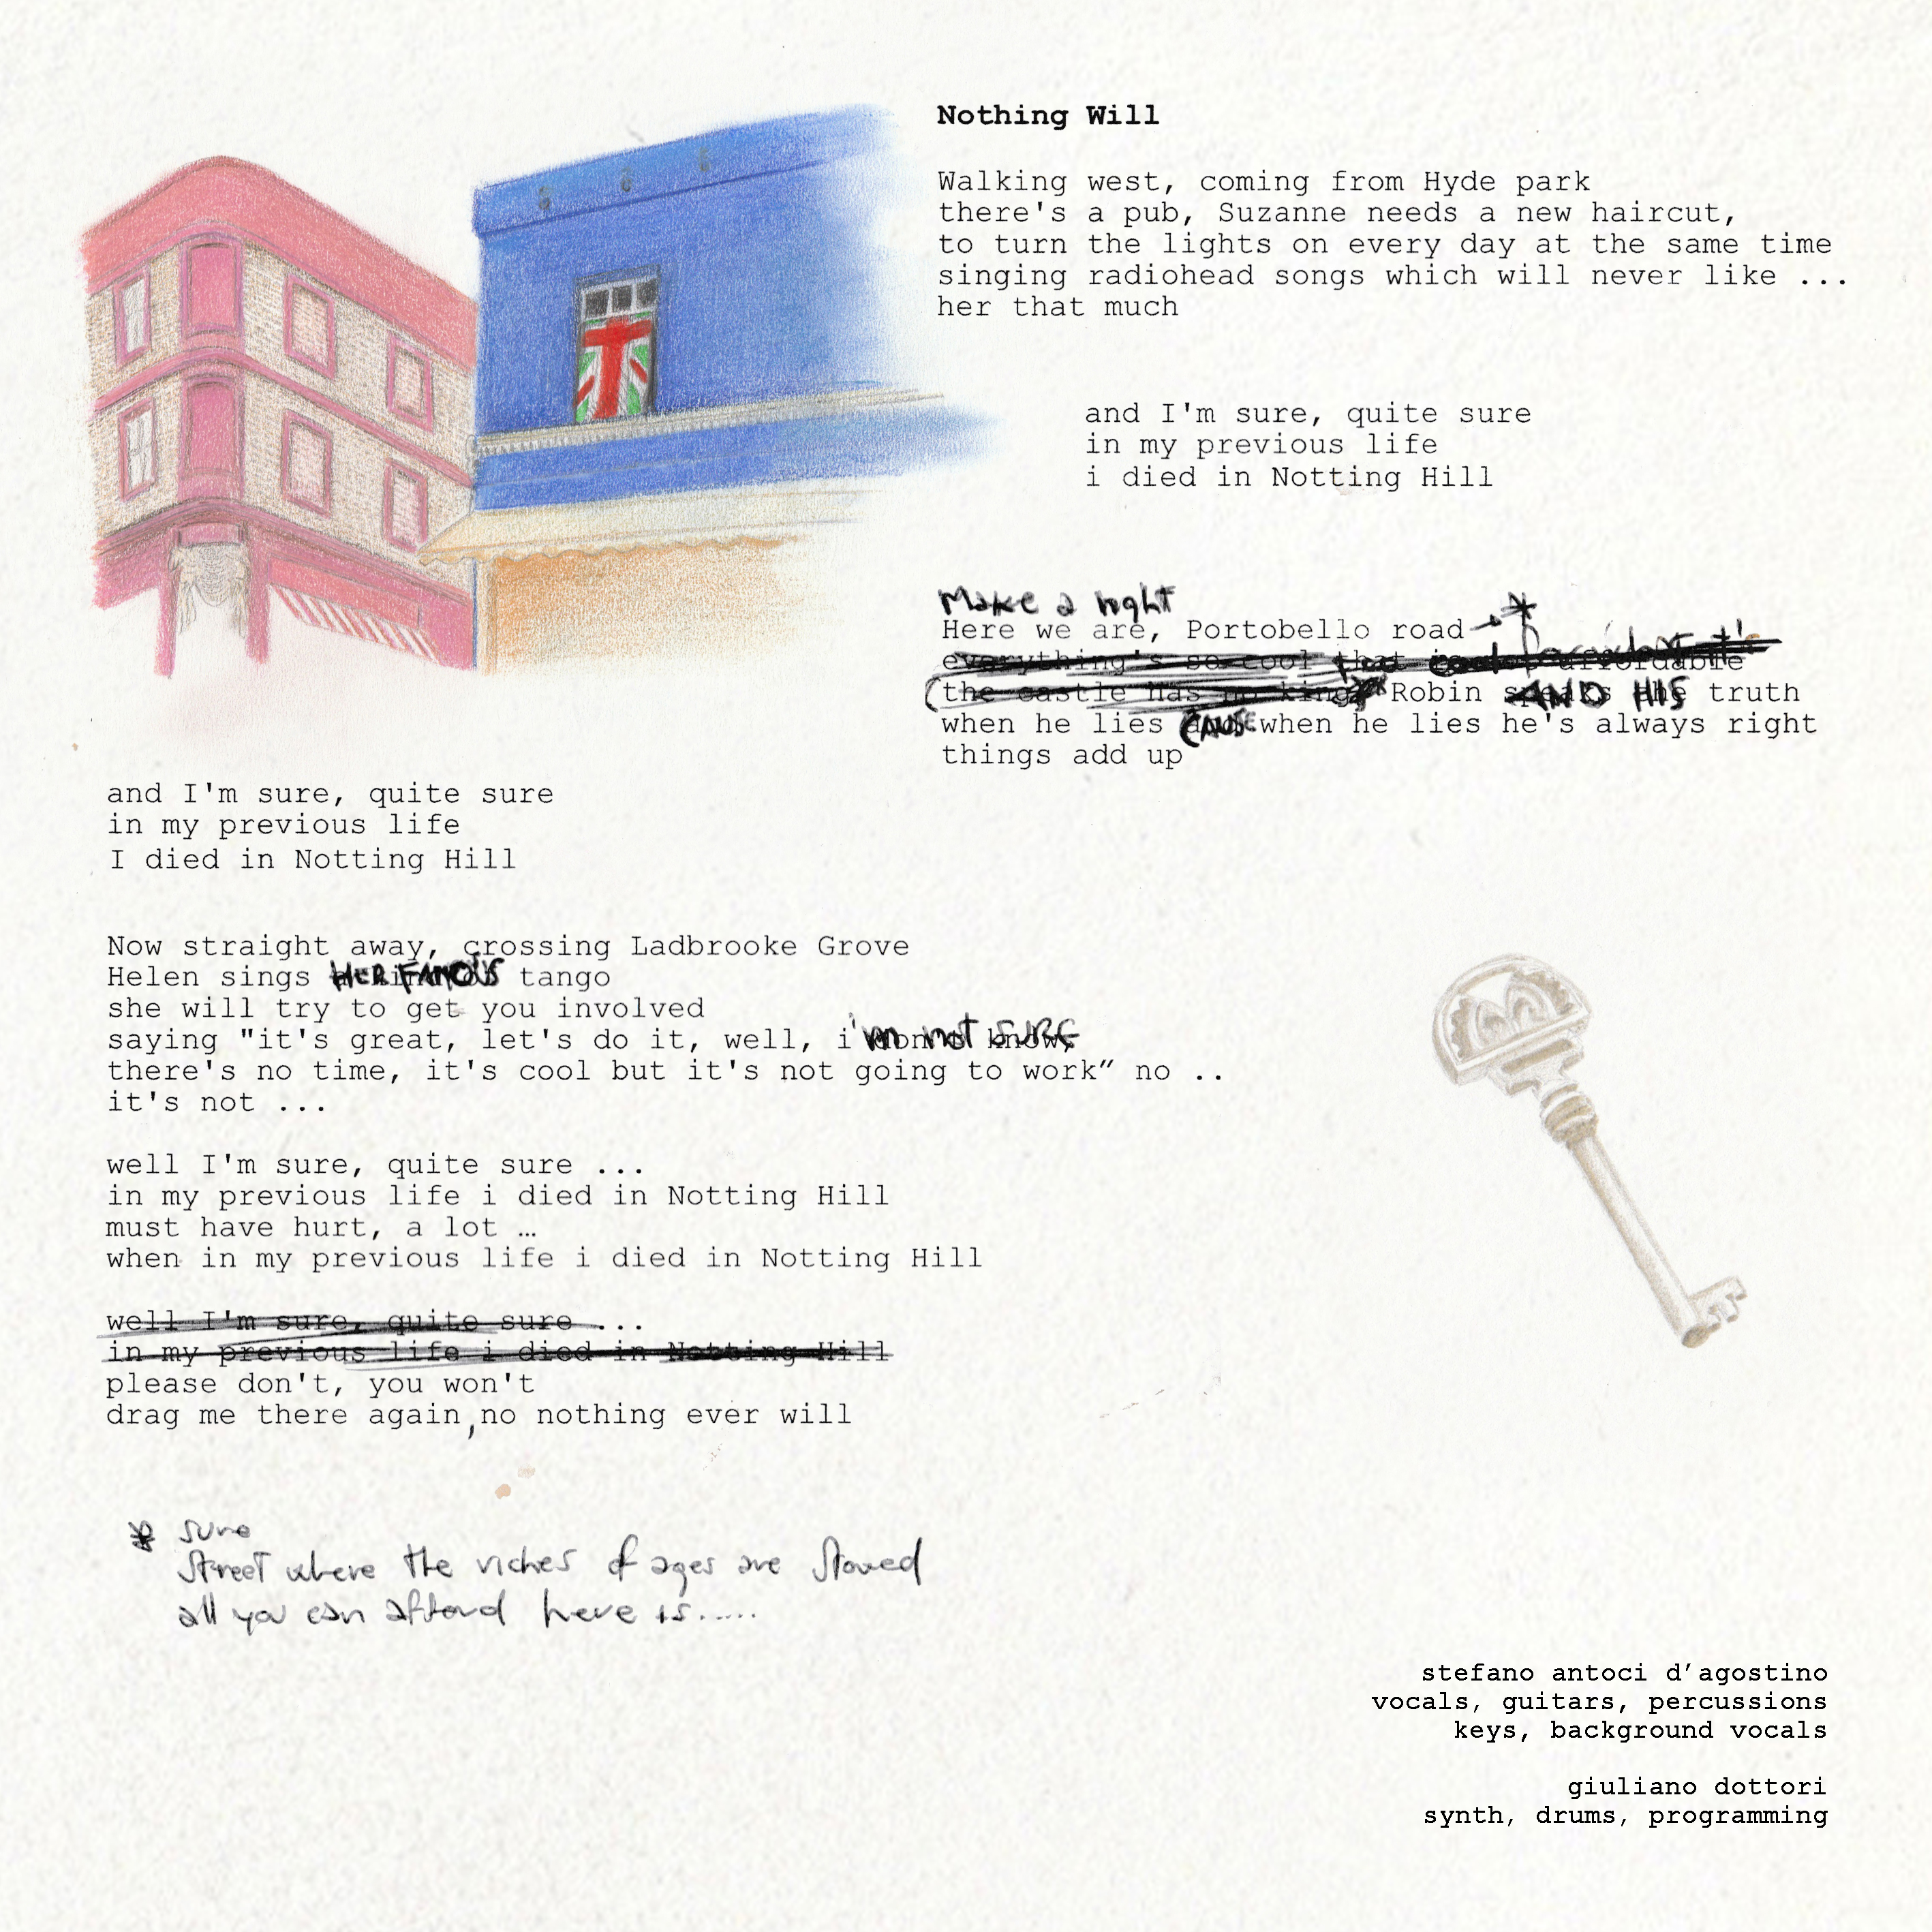 Nothing Will
Walking west, coming from Hyde park
there's a pub, Suzanne needs a new haircut,
to turn the lights on every day at the same time
singing radiohead songs which will never like ...
her that much
and I'm sure, quite sure
in my previous life
i died in Notting Hill
Make a right
Here we are, Portobello road *
everything's so cool that is affordable
(the castle has no king, Robin AND HIS truth
when he lies CAUSE when he lies he's always right
things add up
and I'm sure, quite sure
in my previous life
I died in Notting Hill
Now straight away, crossing Ladbrooke Grove
Helen sings HER FAMOUS tango
she will try to get you involved
saying "it's great, let's do it, well, i'm not sure
there's no time, it's cool but it's not going to work” no ..
it's not ...
well I'm sure, quite sure ...
in my previous life i died in Notting Hill
must have hurt, a lot …
when in my previous life i died in Notting Hill
well I'm sure, quite sure ...
in my previous life i died in Notting Hill
please don't, you won't
drag me there again, no nothing ever will
* sure
street where the riches of ages are stowed
all you can afford here is.....
stefano antoci d’agostino
vocals, guitars, percussions
keys, background vocals
giuliano dottori
synth, drums, programming